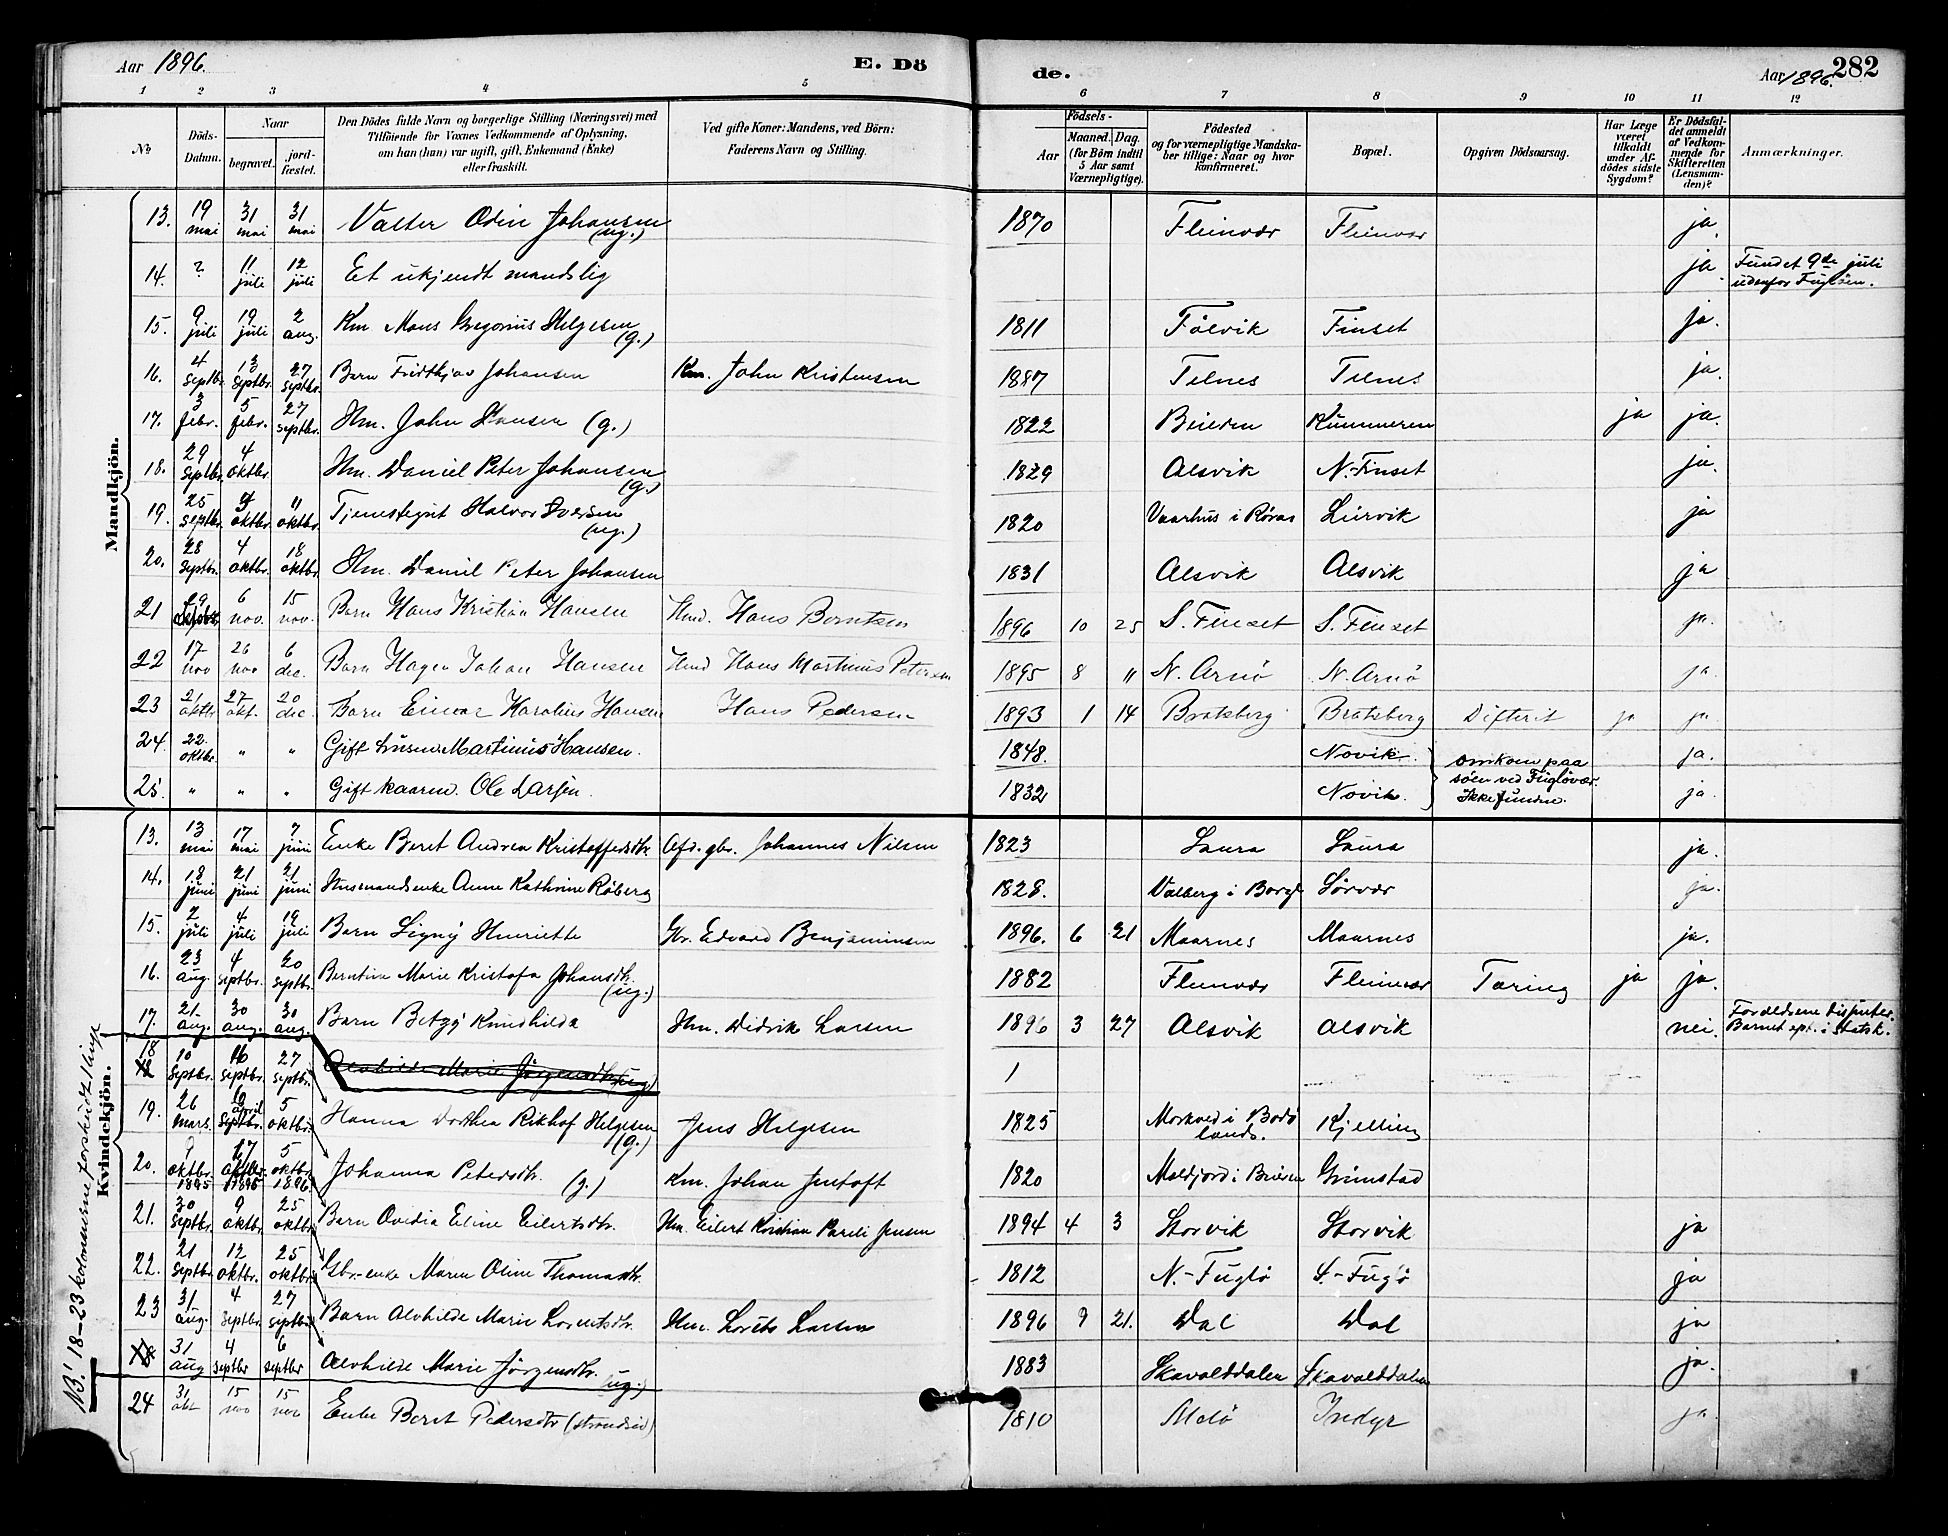 Aar 1896. E. Dö
de. Aar 1896. 282
1 2 3 4 5 6 7 8 9 10 11 12
No Döds-Datum. Naar begravet. jordfæstet. Den Dödes fulde Navn og borgerlige Stilling (Næringsvei) med Tilföiende for Voxnes Vedkommende af Oplysning, om han (hun) var ugift, gift, Enkemand (Enke) eller fraskilt. Ved gifte Koner: Mandens, ved Börn: Faderens Navn og Stilling. Födsels- Aar Maaned. Dag. (for Börn indtil 5 Aar samt Værnepligtige). Födested og for værnepligtige Mandskaber tillige: Naar og hvor konfirmeret. Bopæl. Opgiven Dödsaarsag. Har Læge været tilkaldt under Afdödes sidste Sygdom? Er Dödsfaldet anmeldt af Vedkommende for Skifteretten (Lensmanden)? Anmærkninger.
Mandkjön.
13. 19 mai 31 mai 31 mai Valter Odin Johansen (ug.) 1870 Fleinvær Fleinvær ja.
14. ? 11 juli 12 juli Et ukjendt mandslig ja. Fundet 9de juli udenfor Fugløen.
15. 9 juli 19 juli 2 aug. Km Mons Gregorius Helgesen (g.) 1811 Tølvik Finset ja.
16. 4 septbr. 13 septbr. 27 septbr. Barn Fridthjov Johansen Km. John Kristensen 1887 Telnes Telnes ja.
17. 3 febr. 5 febr. 27 septbr. Hm. John Hansen (g.) 1822 Beieren Kummeren ja ja.
18. 29 septbr. 4 oktbr. Hm. Daniel Peter Johansen (g.) 1829 Alsvik N.-Finset ja.
19. 25 septbr. 4 oktbr. 11 oktbr. Tjenestegut Halvor Iversen (ug.) 1820 Vaarhus i Røras Lurvik ja
20. 28 septbr. 4 oktbr. 18 oktbr. Hm. Daniel Peter Johansen 1831 Alsvik Alsvik ja
21 29 6 nov. 15 nov. Barn Hans Kristian Hansen Hmd. Hans Berntsen 1896 10 25 S. Finset S. Finset ja.
22 17 nov 26 nov 6 dec. Barn Hagen Johan Hansen Hmd Hans Martinus Petersen 1895 8 " N. Arnø N. Arnø ja.
23 21 oktbr 27 okt. 20 dec. Barn Einar Karolius Hansen Hans Pedersen 1893 1 14 Bratsberg Bratsberg Difterit ja ja.
24. 22. oktbr. " " Gift Martinus Hansen. 1848. Novik. omkom paa søen ved Fugløvær. Ikke funden. ja.
25. " " " Gift kaarm. Ole Larsen. 1832 Novik. ja.
Kvindekjön.
13. 13 mai 17 mai 7 juni Enke Beret Andrea Kristoffersdtr. Afd. gbr. Johannes Nilsen 1823 Saura Saura ja.
14. 18 juni 21 juni 21 juni Husmandsenke Anne Kathrine Røberg 1828. Valberg i Borge Sørvær ja.
15. 2 juli 4 juli 19 juli Barn Signy Henriette Gbr. Edvard Benjaminsen 1896. 6 21 Maarnes Maarnes ja.
16. 23 aug. 4 septbr. 20 septbr. Berntine Marie Kristofa Johansdtr. (ug.) 1882 Fleinvær Fleinvær Tæring ja ja.
17. 21 aug. 30 aug. 30 aug. Barn Betzy Kundhilda Hm. Didrik Larsen 1896 3 27 Alsvik Alsvik nei. Forældrene dissenter. Barnet opt. i Statsk.
18 10 septbr. 16 septbr. 27 septbr. Alvhilde Marie Jørgensdtr. (ug.) 1
19. 26 mars. 10 april septbr. 5 oktbr. Hanna Dorthea Rikhof Helgesen (g.) Jens Helgesen 1825 Morkved i Bodø lands. Kjelling
20. 9 oktbr. 1895 17 oktbr. 1895 5 oktbr. 1896 Johanna Petersdtr. (g.) Km. Johan Jentoft 1820 Moldjord i Beieren Grimstad
21. 30 septbr. 9 oktbr. 25 oktbr. Barn Ovidia Eline Eilertsdtr. Hm. Eilert Kristian Pareli Jensen 1894 4 3 Storvik Storvik ja
22. 21 septbr. 12 oktbr. 25 oktbr. Gbr.-enke Maren Oline Thomasdtr. 1812 N.-Fuglø S.-Fuglø ja
23 31 aug. 4 septbr. 27 septbr. Barn Alvhilde Marie Lorentsdtr. Hm. Lorents Larsen 1896 9 21. Dal Dal ja
18 31 aug 4 septbr 6 septbr Alvhilde Marie Jörgensdtr. (ug.) 1883 Skavolddalen Skavolddalen ja.
24 31 okt 15 nov 15 nov Enke Beret Pedersdtr (strandsid) 1810 Melø Indyr ja.
NB! 18-23 kolonnerne forskudt 1 linje